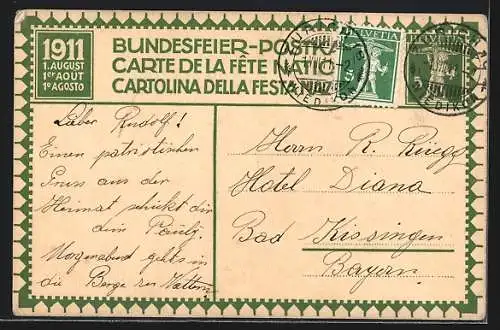 1911
1. AUGUST
1ER AOÛT
1º AGOSTO
BUNDESFEIER-POSTKA
CARTE DE LA FÊTE NATIO
CARTOLINA DELLA FESTA
HELVETIA
5
5
Lieber Rudolf!
Einen patriotischen
Gruss aus der
Heimat schickt dir
dein
Morgenabend geht's in
die Berge
Herrn R. Rüegg
Hotel Diana
Bad Kissingen
Bayern